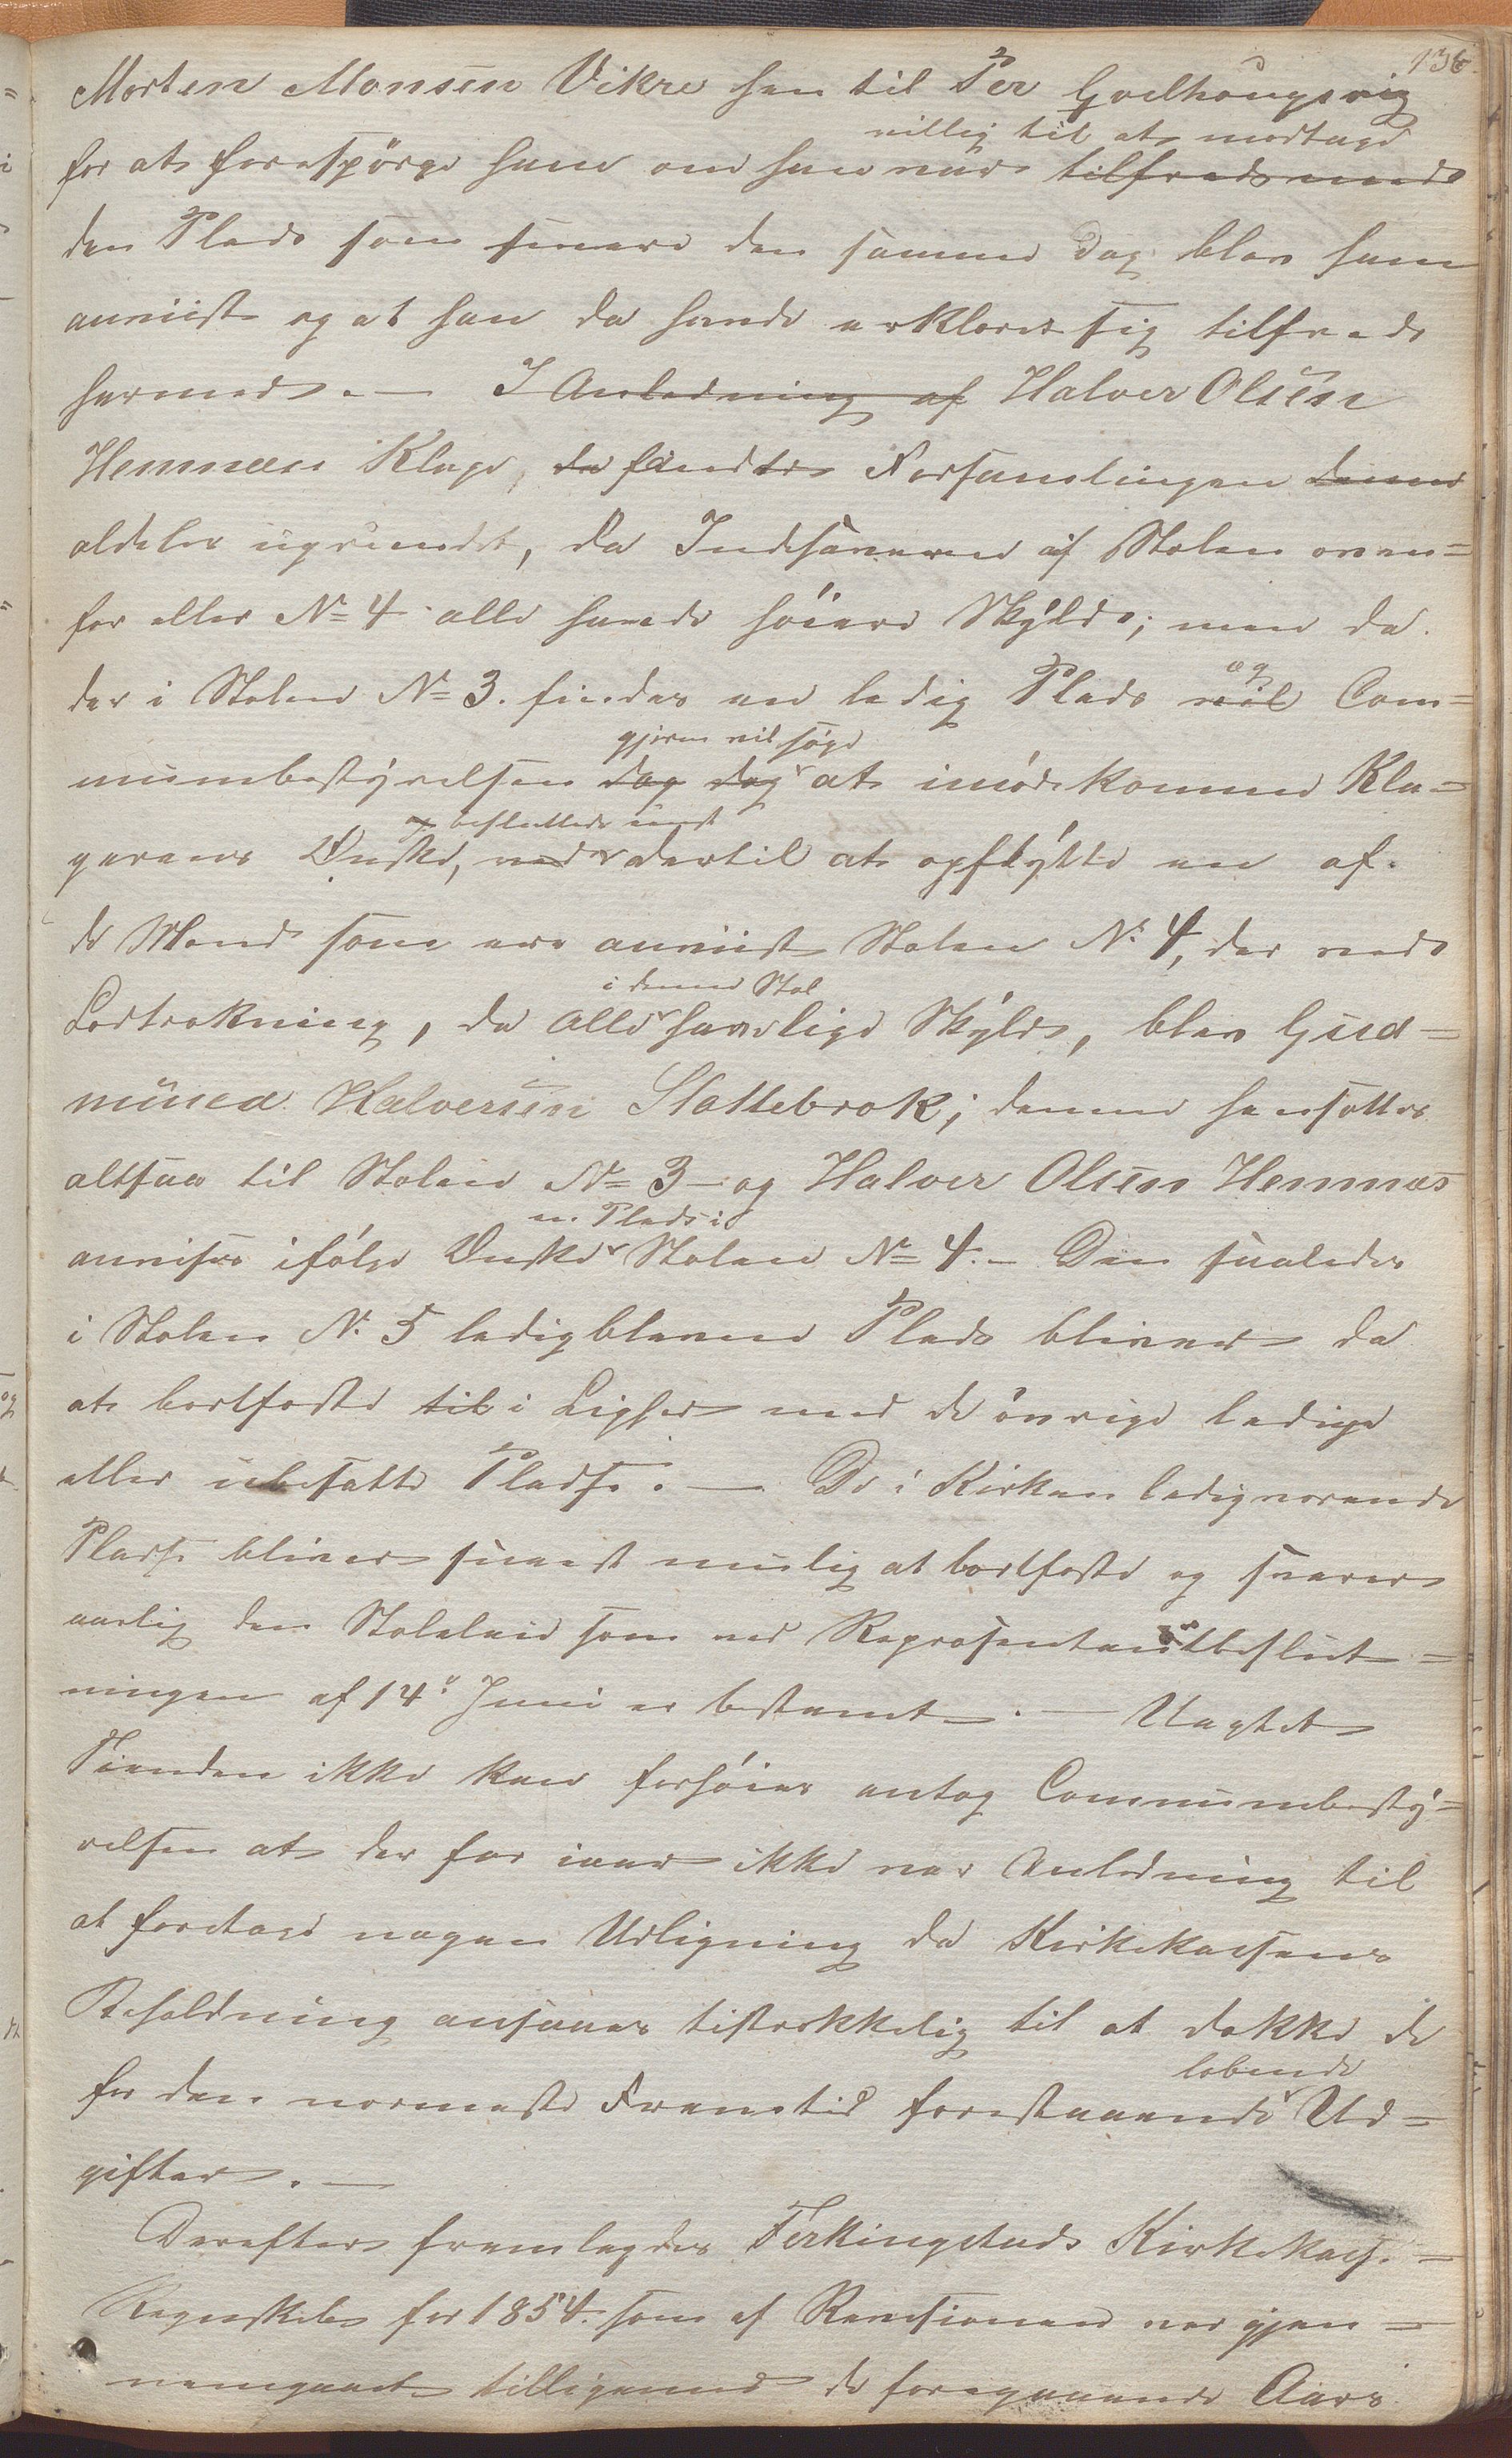 136
Morten Monsen Vikre hen til Per Godhougsvig
villig til at modtage
for at forespörge ham om han var tilfreds med
den Plads som senere den samme Dag blev ham
anviist og at han da havde erklæret sig tilfreds
hermed. — I Anledning af Halver Olsen
Hemnæs Klage, da fandtes Forsamlingen denne
aldeles ugrundet, da Indehaverne af Stolen oven=
for eller No 4 alle havde höiere Skyld; men da
der i Stolen No 3. findes en ledig Plads vil og Com=
gjerne vil söge
munebestyrelsen dog dog at imödekomme Kla=
og besluttede einst
gerens Önske, ved dertil at opflytte en af
de Mænd som ere anviist Stolen No 4, der ved
i denne Stol
Lodtrækning, da alle havde lige Skyld, blev Gud=
mund Halversen Slattebrek; denne hensættes
altsaa til Stolen No 3 - og Halver Olsen Hemnæs
en Plads i
anvises ifölge Önske Stolen No 4. - Den saaledes
i Stolen No 5 ledigblevne Plads bliver da
at bortfæste til i Lighed med de övrige ledige
eller ubesatte Pladse. — De i Kirken ledigværende
Pladse bliver snarest mulig at bortfæste og svarer
aarlig den Stoleleie som ved Repræsentantbeslut=
ningen af 14de Juni er bestemt. — Uagtet
Tienden ikke kan forhöies antog Communebesty=
relsen at der for iaar ikke var Anledning til
at foretage nogen Udligning da Kirkekassens
Beholdning ansaaes tistrækkelig til at dække de
löbende
for den nærmeste Fremtid forestaaende Ud=
gifter. —
Derefter fremlagdes Ferkingstads Kirkekasse=
Regnskab for 1854 som af Revisionen var gjen=
nemgaaet tilligemed de foregaaende Aars